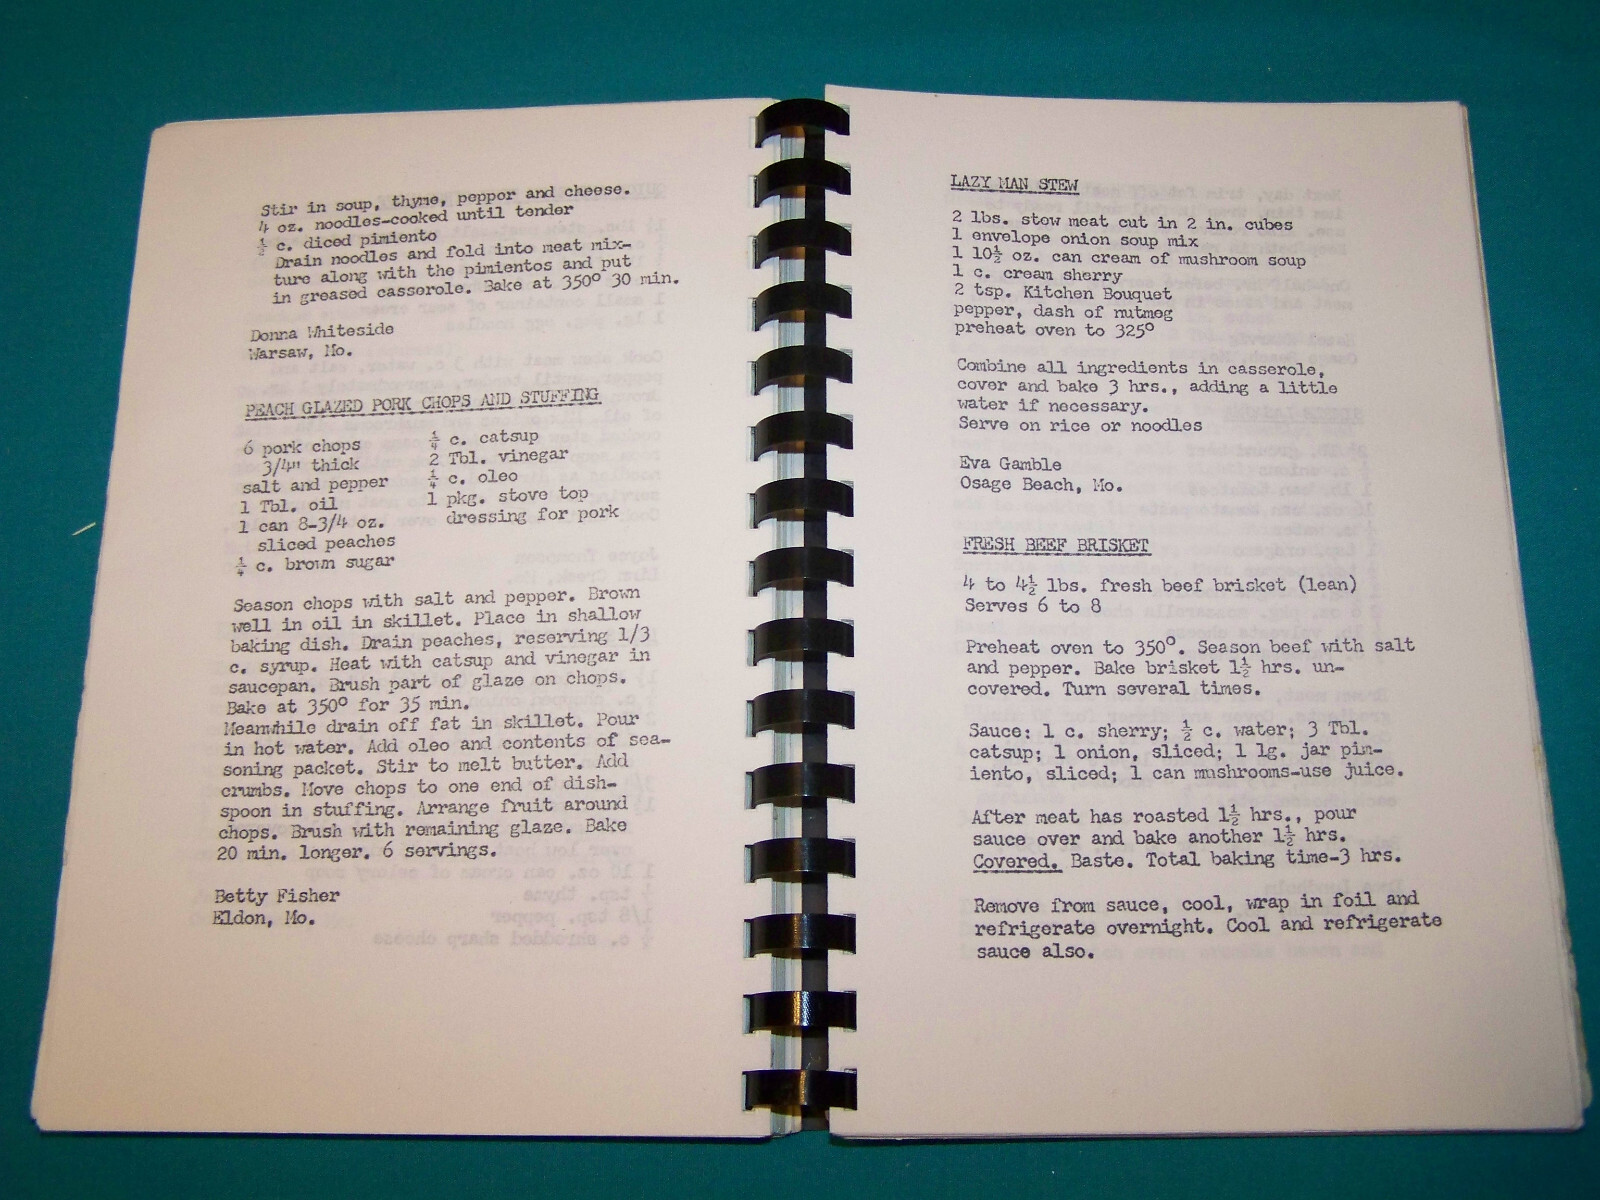 Stir in soup, thyme, pepper and cheese.
4 oz. noodles-cooked until tender
½ c. diced pimiento
Drain noodles and fold into meat mix-
ture along with the pimientos and put
in greased casserole. Bake at 350° 30 min.
Donna Whiteside
Warsaw, Mo.
PEACH GLAZED PORK CHOPS AND STUFFING
6 pork chops
3/4" thick
salt and pepper
1 Tbl. oil
1 can 8-3/4 oz.
sliced peaches
¼ c. brown sugar
¼ c. catsup
2 Tbl. vinegar
¼ c. oleo
1 pkg. stove top
dressing for pork
Season chops with salt and pepper. Brown
well in oil in skillet. Place in shallow
baking dish. Drain peaches, reserving 1/3
c. syrup. Heat with catsup and vinegar in
saucepan. Brush part of glaze on chops.
Bake at 350° for 35 min.
Meanwhile drain off fat in skillet. Pour
in hot water. Add oleo and contents of sea-
soning packet. Stir to melt butter. Add
crumbs. Move chops to one end of dish-
spoon in stuffing. Arrange fruit around
chops. Brush with remaining glaze. Bake
20 min. longer. 6 servings.
Betty Fisher
Eldon, Mo.
LAZY MAN STEW
2 lbs. stew meat cut in 2 in. cubes
1 envelope onion soup mix
1 10½ oz. can cream of mushroom soup
1 c. cream sherry
2 tsp. Kitchen Bouquet
pepper, dash of nutmeg
preheat oven to 325°
Combine all ingredients in casserole,
cover and bake 3 hrs., adding a little
water if necessary.
Serve on rice or noodles
Eva Gamble
Osage Beach, Mo.
FRESH BEEF BRISKET
4 to 4½ lbs. fresh beef brisket (lean)
Serves 6 to 8
Preheat oven to 350°. Season beef with salt
and pepper. Bake brisket 1½ hrs. un-
covered. Turn several times.
Sauce: 1 c. sherry; ½ c. water; 3 Tbl.
catsup; 1 onion, sliced; 1 lg. jar pim-
iento, sliced; 1 can mushrooms-use juice.
After meat has roasted 1½ hrs., pour
sauce over and bake another 1½ hrs.
Covered. Baste. Total baking time-3 hrs.
Remove from sauce, cool, wrap in foil and
refrigerate overnight. Cool and refrigerate
sauce also.